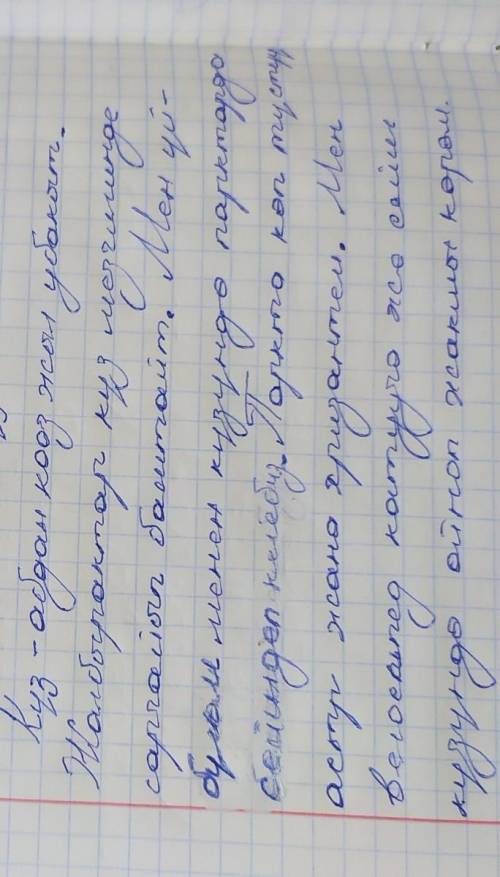 Куз - абдан кооз жыл убакыт.
Жалбырактар куз мезгилинде
саргайып баштайт. Мен үй-
бүлөм менен кузундо парктарда
сейилдеп келебиз. Паркта көп түстүү
астур жана хризантем. Мен
велосипед катууга же сейил
кузундо ойноп жакшы көрөм.